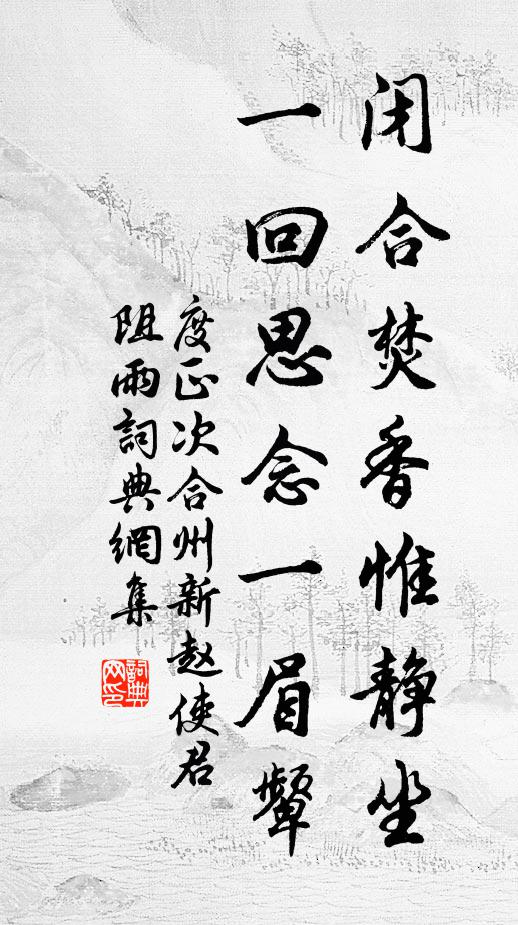 闭合焚香惟静坐
一回思念一眉颦
度正次合州新赵使君
阻雨詞典網集
詞典网印